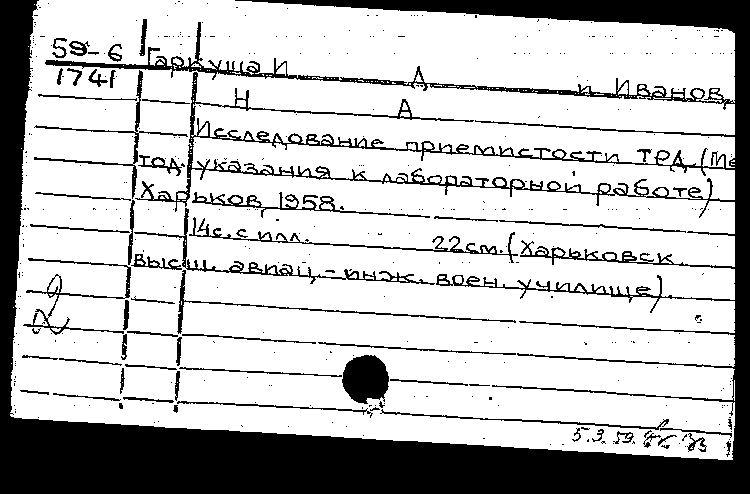 59-6
1741
Гаркуша И Д и Иванов,
Н А
Исследование приемистости ТРД. (Ме
тод. указания к лабораторной работе)
Харьков, 1958.
14с. с илл. 22см. (Харьковск.
высш. авиац.-инж. воен. училище).
2
5.3.59.